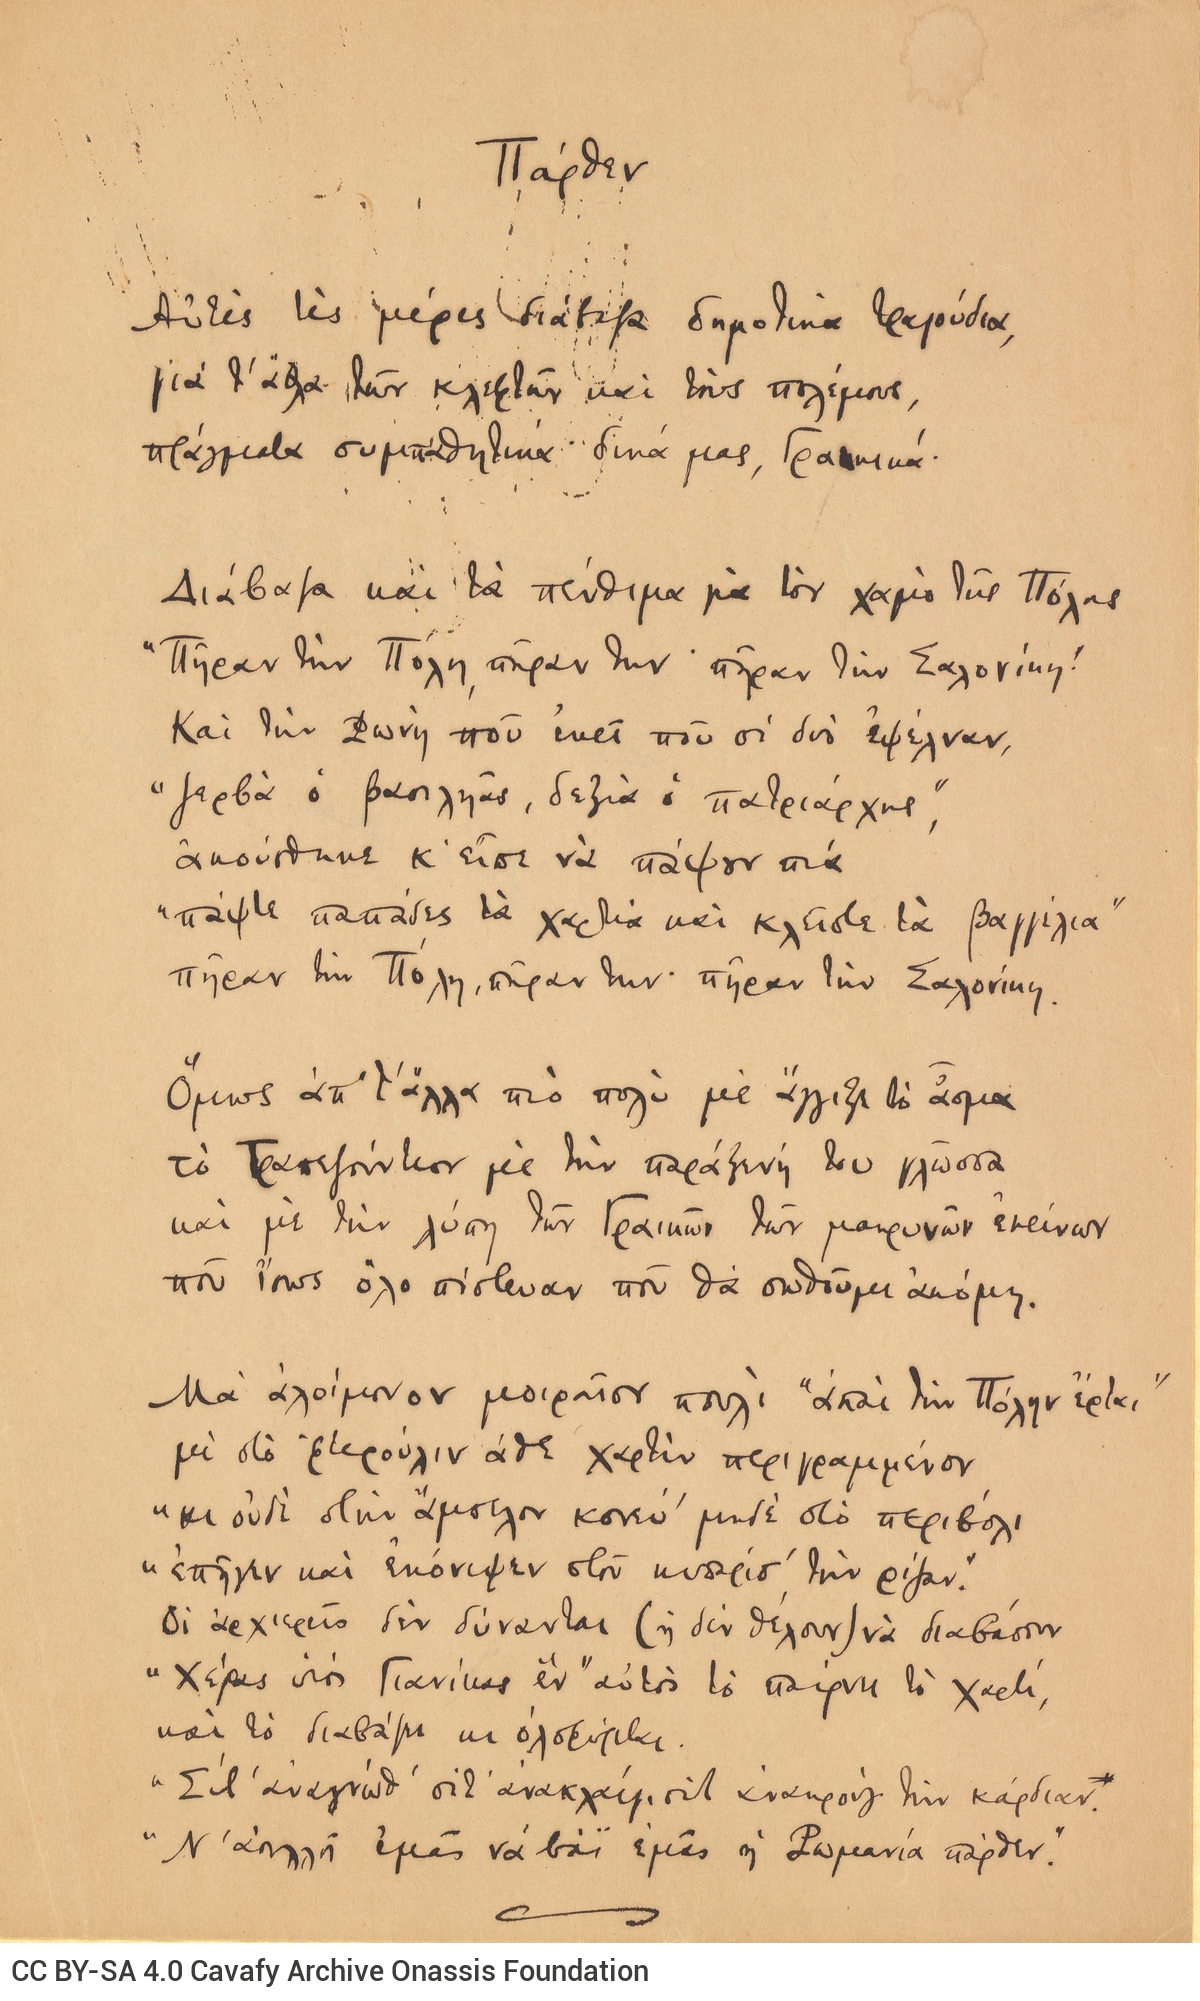 Πάρθεν
Αὐτὲς τὲς μέρες διάβαζα δημοτικὰ τραγούδια,
γιὰ τ' ἆθλα τῶν κλεφτῶν καὶ τοὺς πολέμους,
πράγματα συμπαθητικά· δικά μας, Γραικικά.
Διάβαζα καὶ τὰ πένθιμα γιὰ τὸν χαμὸ τῆς Πόλης
"Πῆραν τὴν Πόλη, πῆραν την· πῆραν τὴν Σαλονίκη."
Καὶ τὴν Φωνὴ ποῦ ἐκεῖ ποῦ οἱ δυὸ ἐψέλναν,
"ζερβὰ ὁ βασιληᾶς, δεξιὰ ὁ πατριάρχης",
ἀκούσθηκε κ' εἶπε νὰ πάψουν πιὰ
"πάψτε παπάδες τὰ χαρτιὰ καὶ κλεῖστε τὰ βαγγέλια"
πῆραν τὴν Πόλη, πῆραν την· πῆραν τὴν Σαλονίκη.
Ὅμως ἀπ' τ' ἄλλα πιὸ πολὺ μὲ ἄγγιξε τὸ ᾆσμα
τὸ Τραπεζούντιον μὲ τὴν παράξενή του γλῶσσα
καὶ μὲ τὴν λύπη τῶν Γραικῶν τῶν μακρυνῶν ἐκείνων
ποῦ ἴσως ὅλο πίστευαν ποῦ θὰ σωθοῦμε ἀκόμη.
Μὰ ἀλοίμονον μοιραῖον πουλὶ "ἀπαὶ τὴν Πόλην ἔρται"
μὲ στὸ "φτερούλιν ἀθε χαρτὶν περιγραμμένον
"κι οὐδὲ στὴν ἄμπελον κονεύ' μηδὲ στὸ περιβόλι
"ἐπῆγεν καὶ ἐκόνεψεν στοῦ κυπαρίσ' τὴν ρίζαν."
Οἱ ἀρχιερεῖς δὲν δύνανται (ἢ δὲν θέλουν) νὰ διαβάσουν
"Χέρας υἱὸς Γιανίκας ἔν" αὐτὸς τὸ παίρνει τὸ χαρτί,
καὶ τὸ διαβάζει κι ὀλοφύρεται.
"Σίτ' ἀναγνώθ' σίτ' ἀνακλαίγ' σίτ' ἀνακρούγ' τὴν κάρδιαν."
"Ν' ἀοιλλῆ ἐμᾶς νὰ βάϊ ἐμᾶς ἡ Ρωμανία πάρθεν."
CC BY-SA 4.0 Cavafy Archive Onassis Foundation